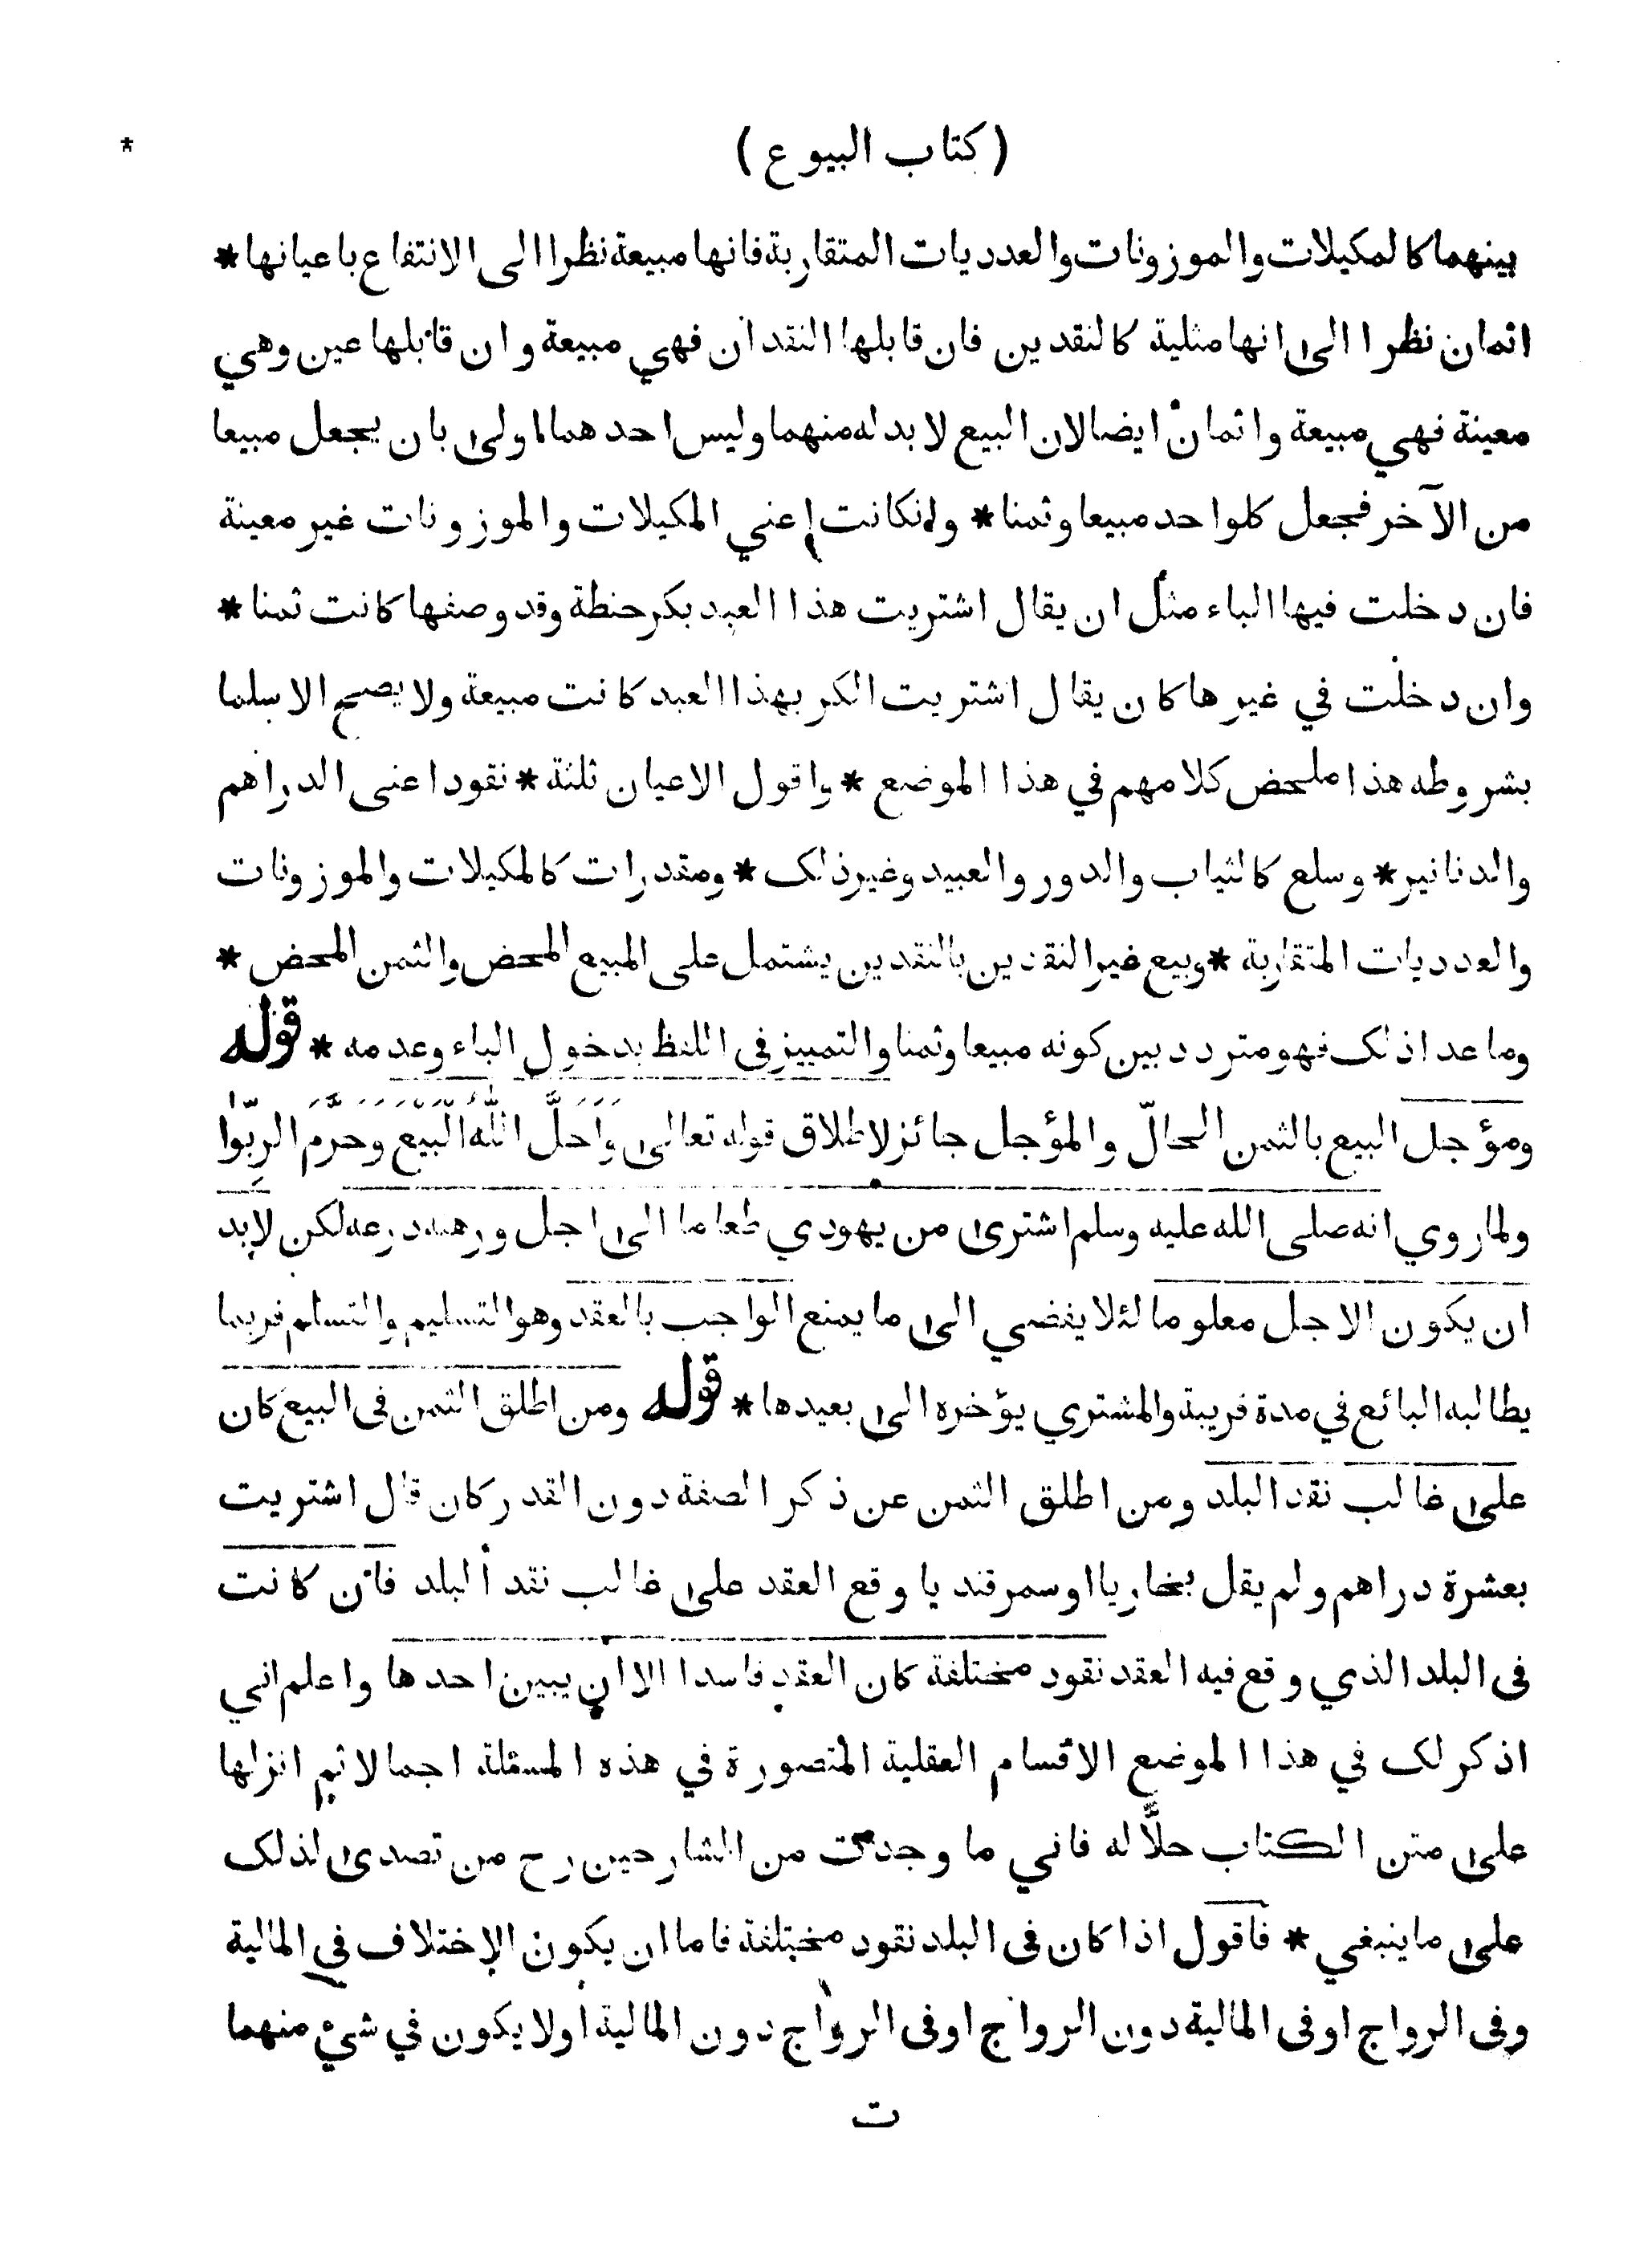 ( كتاب البيوع )
بينهما كالمكيلات والموزونات والعدديات المتقاربة فانها مبيعة نظرا الى الانتفاع باعيانها *
اثمان نظرا الى انها مثلية كالنقدين فان قابلها النقدان فهي مبيعة وان قابلها عين وهي
معينة فهي مبيعة واثمان ايضا لان البيع لا بد له منهما وليس احدهما اولى بان يجعل مبيعا
من الآخر فجعل كلواحد مبيعا وثمنا * وانكانت اعني المكيلات والموزونات غير معينة
فان دخلت فيها الباء مثل ان يقال اشتريت هذا العبد بكر حنطة وقد وصفها كانت ثمنا *
وان دخلت في غيرها كان يقال اشتريت الكر بهذا العبد كانت مبيعة ولا يصح الا سلما
بشروطه هذا ملخص كلامهم في هذا الموضع * واقول الاعيان ثلثة * نقود اعنى الدراهم
والدنانير * وسلع كالثياب والدور والعبيد وغيرذلك * ومقدرات كالمكيلات والموزونات
والعدديات المتقاربة * وبيع غير النقدين بالنقدين يشتمل على المبيع المحض والثمن المحض *
وما عدا ذلك فهو متردد بين كونه مبيعا وثمنا والتمييز فى اللفظ بدخول الباء وعدمه * قوله
ومؤجل البيع بالثمن الحالّ والمؤجل جائز لاطلاق قوله تعالى وَاَحَلَّ اللّٰهُ الْبَيْعَ وَحَرَّمَ الرِّبٰوا
ولما روي انه صلى الله عليه وسلم اشترى من يهودي طعاما الى اجل ورهنه درعه لكن لابد
ان يكون الاجل معلوما لئلا يفضي الى ما يمنع الواجب بالعقد وهو التسليم والتسلم فربما
يطالبه البائع في مدة قريبة والمشتري يؤخره الى بعيدها * قوله ومن اطلق الثمن فى البيع كان
على غالب نقد البلد ومن اطلق الثمن عن ذكر الصفة دون القدر كان قال اشتريت
بعشرة دراهم ولم يقل بخاريا او سمرقنديا وقع العقد على غالب نقد البلد فان كانت
فى البلد الذي وقع فيه العقد نقود مختلفة كان العقد فاسدا الا ان يبين احدها واعلم اني
اذكر لك في هذا الموضع الاقسام العقلية المتصورة في هذه المسئلة اجمالا ثم انزلها
على متن الكتاب حلاّ له فاني ما وجدت من الشارحين رح من تصدى لذلك
على ما ينبغي * فاقول اذا كان فى البلد نقود مختلفة فاما ان يكون الاختلاف في المالية
وفى الرواج او فى المالية دون الرواج او فى الرواج دون المالية او لا يكون في شيء منهما
ت